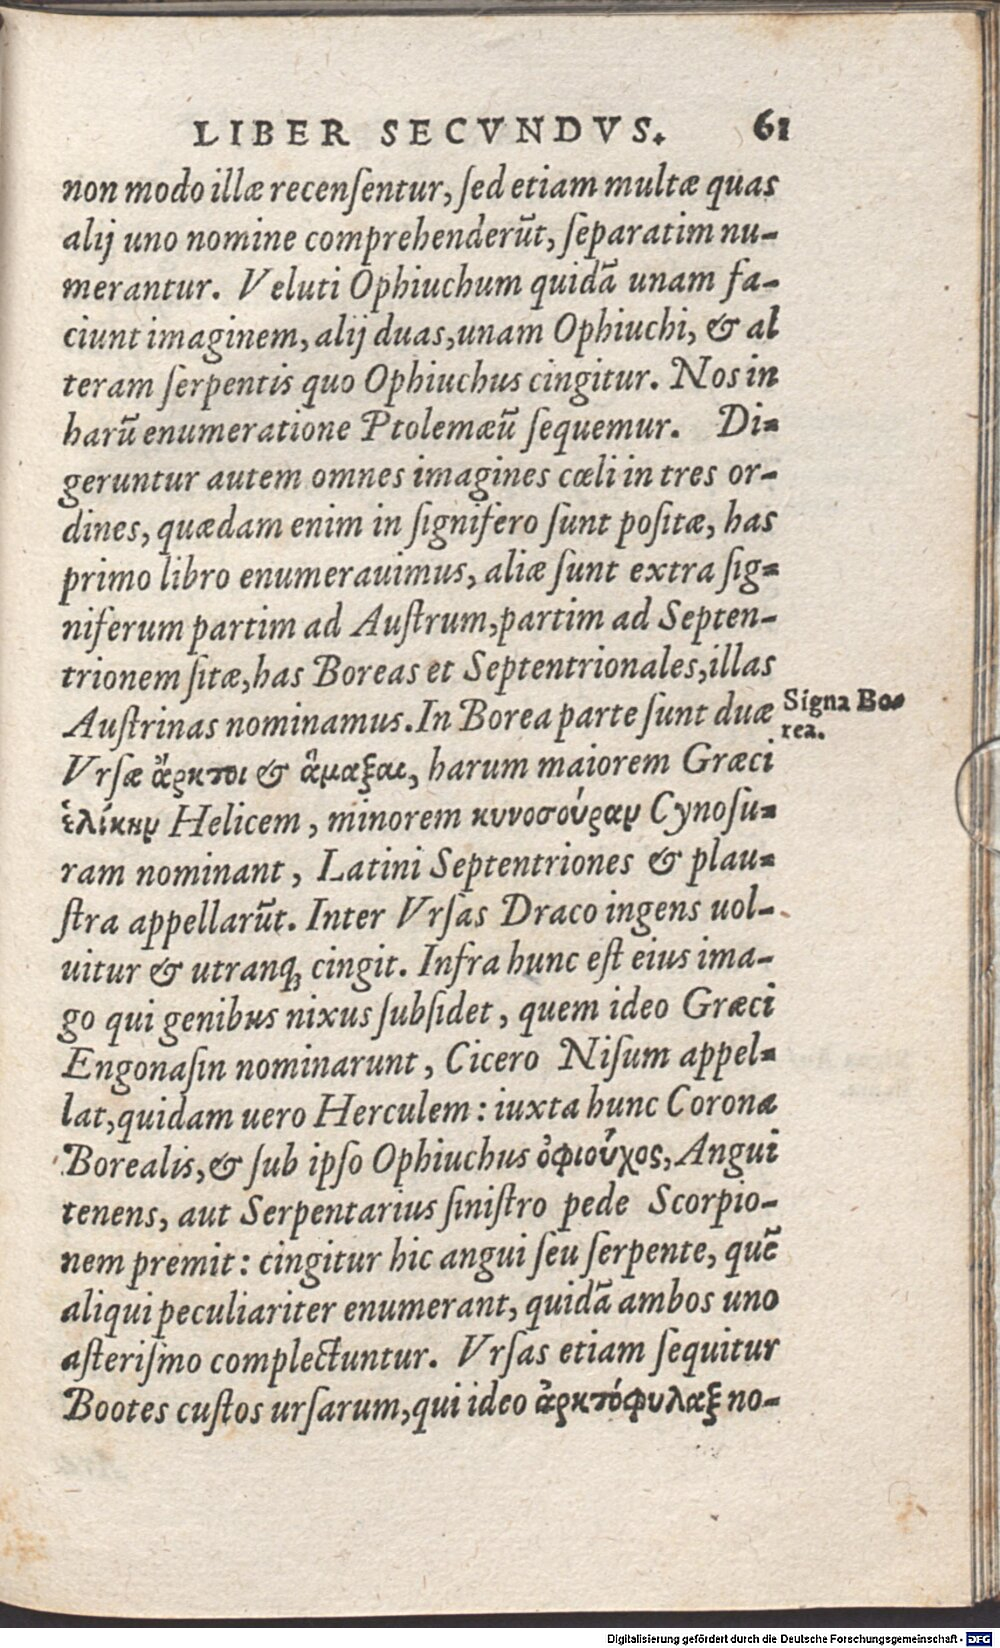 LIBER SECVNDVS. 61
non modo illæ recenſentur, ſed etiam multæ quas
alij uno nomine comprehenderūt, ſeparatim nu-
merantur. Veluti Ophiuchum quidā unam fa-
ciunt imaginem, alij duas, unam Ophiuchi, & al
teram ſerpentis quo Ophiuchus cingitur. Nos in
harū enumeratione Ptolemæū ſequemur. Di-
geruntur autem omnes imagines cœli in tres or-
dines, quædam enim in ſignifero ſunt poſitæ, has
primo libro enumerauimus, aliæ ſunt extra ſig-
niferum partim ad Auſtrum, partim ad Septen-
trionem ſitæ, has Boreas et Septentrionales, illas
Auſtrinas nominamus. In Borea parte ſunt duæ
Signa Bo-
rea.
Vrſæ ἄρκτοι & ἅμαξαι, harum maiorem Græci
ἑλίκην Helicem, minorem κυνοσούραν Cynoſu-
ram nominant, Latini Septentriones & plau-
ſtra appellarūt. Inter Vrſas Draco ingens uol-
uitur & utranq; cingit. Infra hunc eſt eius ima-
go qui genibus nixus ſubſidet, quem ideo Græci
Engonaſin nominarunt, Cicero Niſum appel-
lat, quidam uero Herculem: iuxta hunc Corona
Borealis, & ſub ipſo Ophiuchus ὀφιοῦχος, Angui
tenens, aut Serpentarius ſiniſtro pede Scorpio-
nem premit: cingitur hic angui ſeu ſerpente, quē
aliqui peculiariter enumerant, quidā ambos uno
aſteriſmo complectuntur. Vrſas etiam ſequitur
Bootes cuſtos urſarum, qui ideo ἀρκτόφυλαξ no-
Digitalisierung gefördert durch die Deutsche Forschungsgemeinschaft - DFG